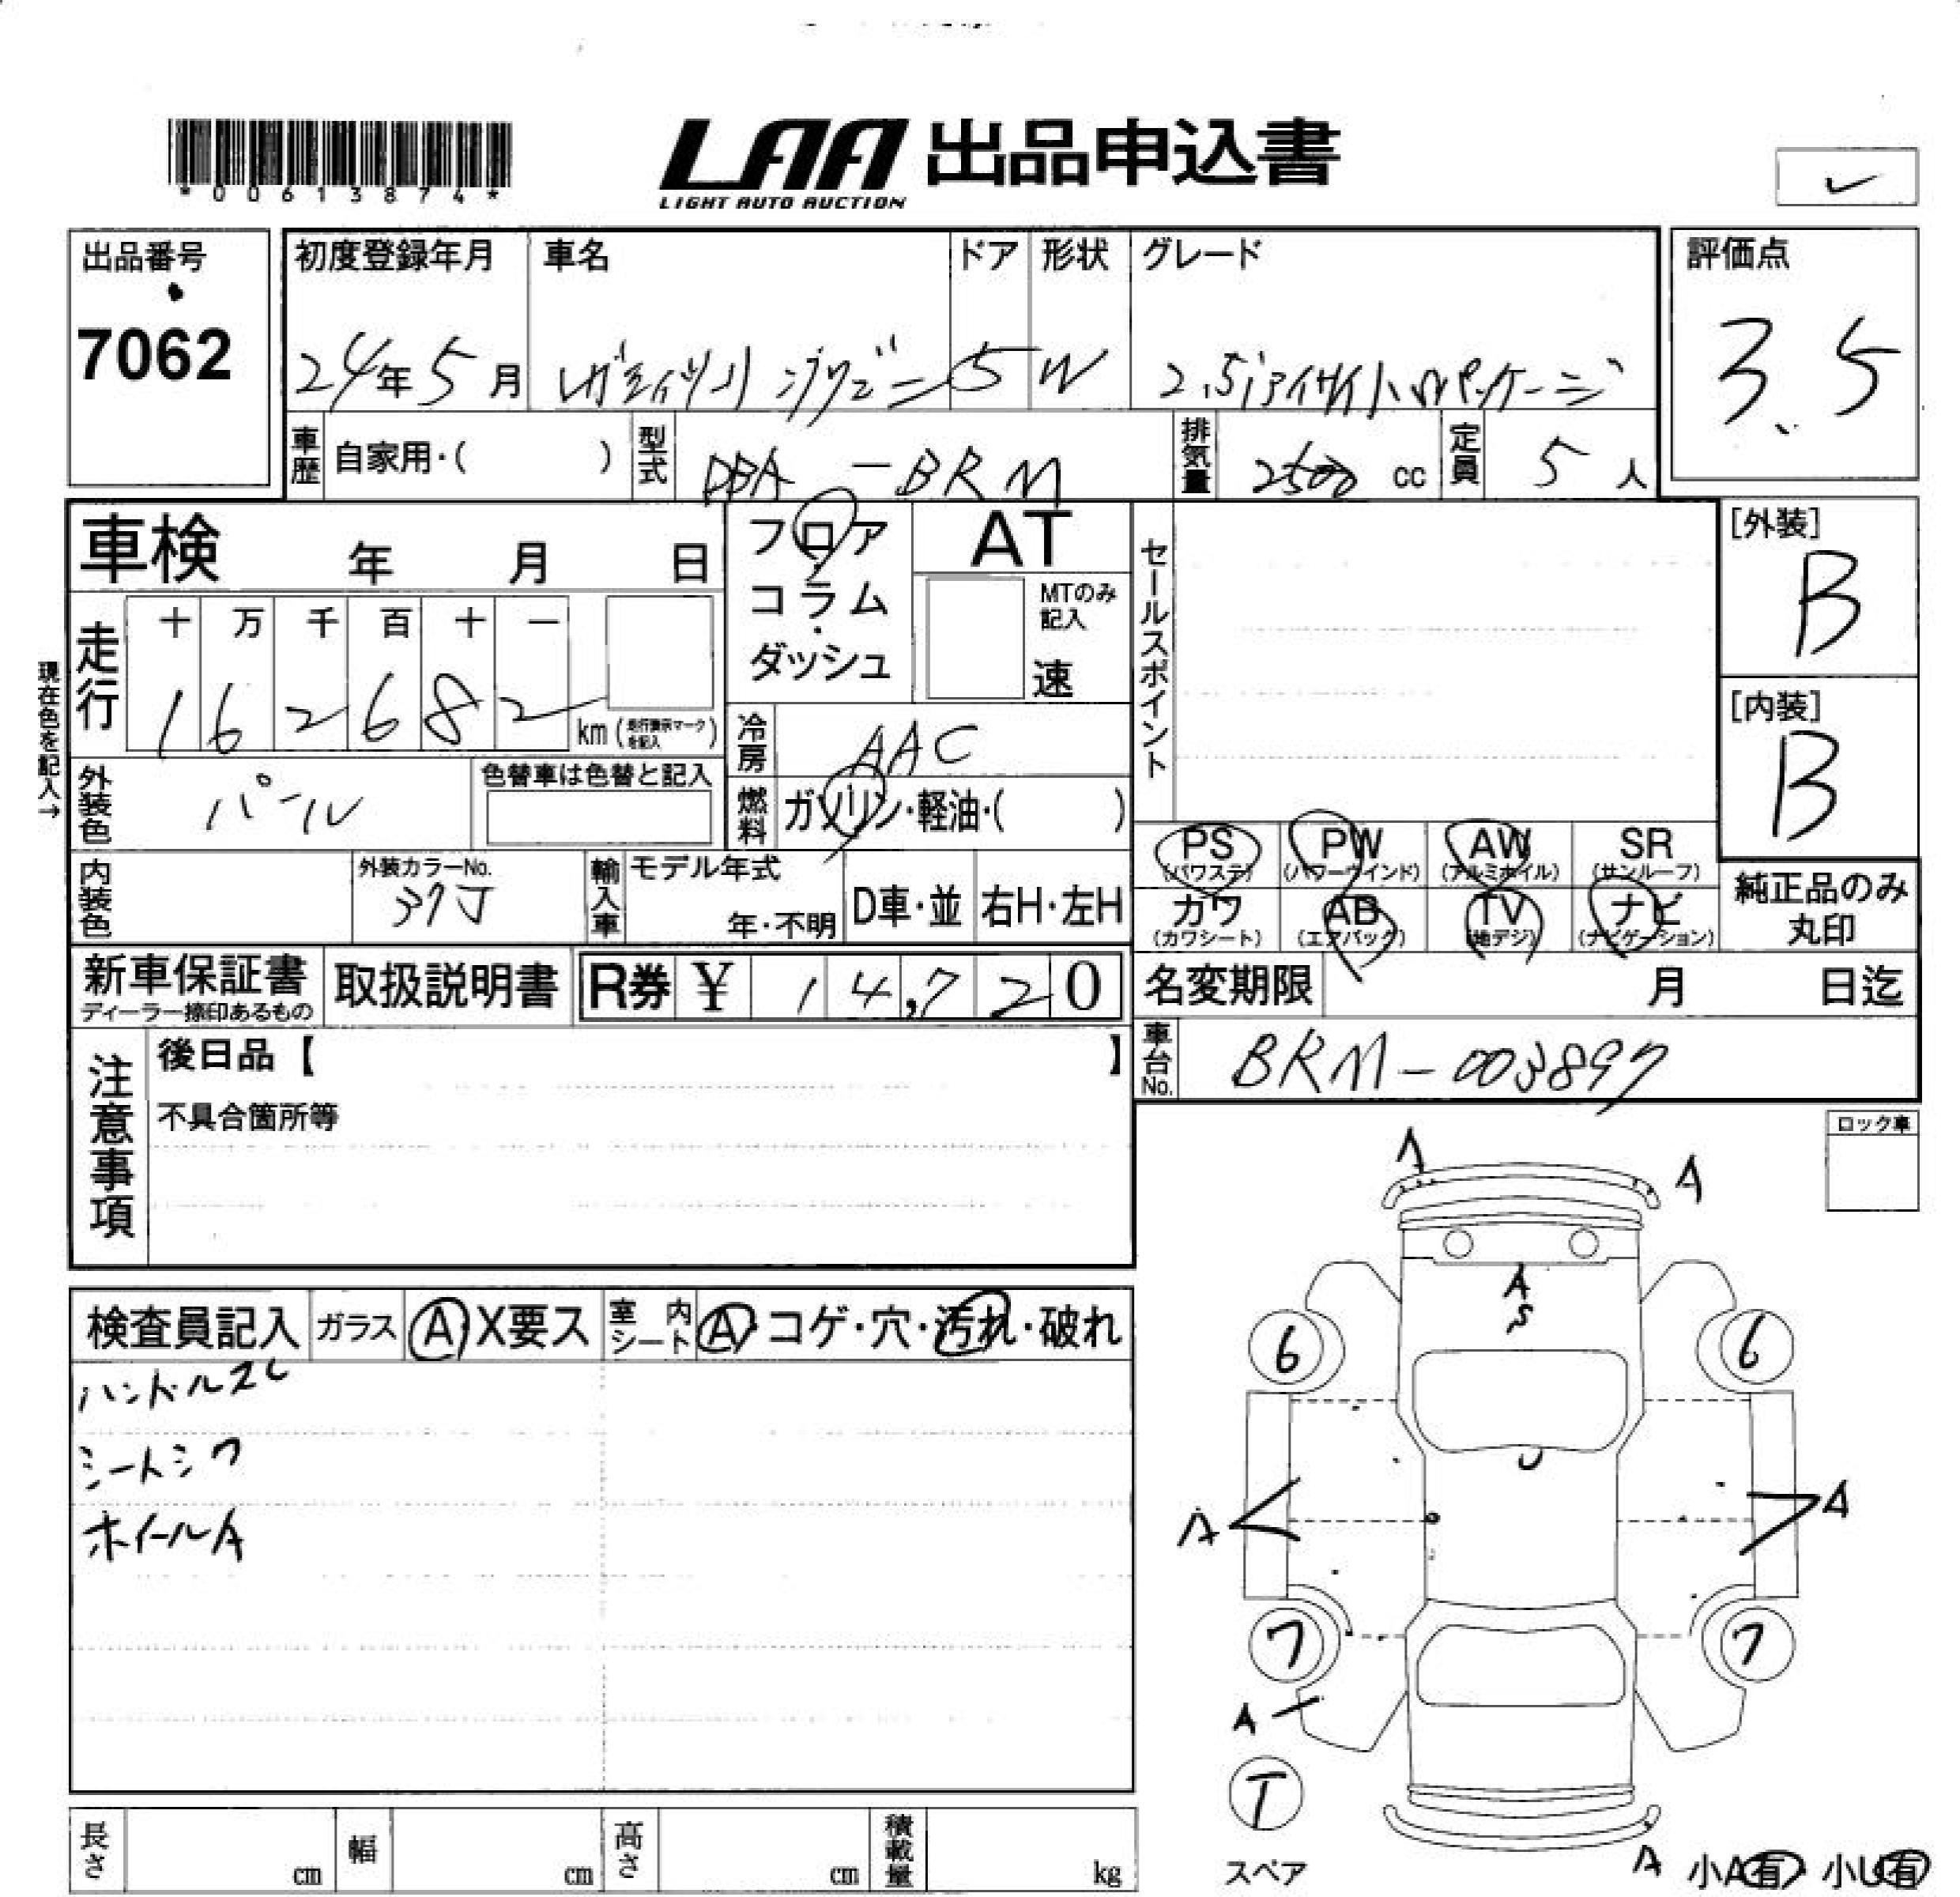 *00613874*
LAA 出品申込書
LIGHT AUTO AUCTION
出品番号
7062
初度登録年月 車名 ドア 形状 グレード
24年5月 レガシィツーリングワゴン 5 W 2.5iアイサイトSパッケージ
評価点
3.5
車歴 自家用・( ) 型式 DBA-BRM 排気量 2500 cc 定員 5 人
車検 年 月 日
フロア
コラム
・
ダッシュ
AT
MTのみ記入
速
セールスポイント
[外装]
B
[内装]
B
現在色を記入→
走行 十 万 千 百 十 一
1 6 2 6 8 2 km (走行表示マークを記入)
冷房 AAC
外装色 パール 色替車は色替と記入
燃料 ガソリン・軽油・( )
内装色 外装カラーNo. 37J
輸入車 モデル年式 年・不明 D車・並 右H・左H
PS (パワステ) PW (パワーウインド) AW (アルミホイル) SR (サンルーフ)
カワ (カワシート) AB (エアバック) TV (地デジ) ナビ (ナビゲーション)
純正品のみ丸印
新車保証書 ディーラー捺印あるもの 取扱説明書 R券 ¥ 14,720
名変期限 月 日迄
車台No. BRM-003897
注意事項 後日品【 】
不具合箇所等
ロック車
検査員記入 ガラス A・X要ス 室内シート A・コゲ・穴・汚れ・破れ
ハンドルスレ
シートシワ
ホイールA
A A
A
S
6 6
U
A A
7 7
A
T
スペア
A 小A有・小U有
長さ cm 幅 cm 高さ cm 積載量 kg